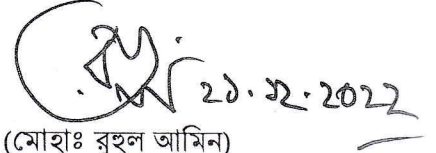 ২১.১২.২০২২
(মোহাঃ রুহুল আমিন)